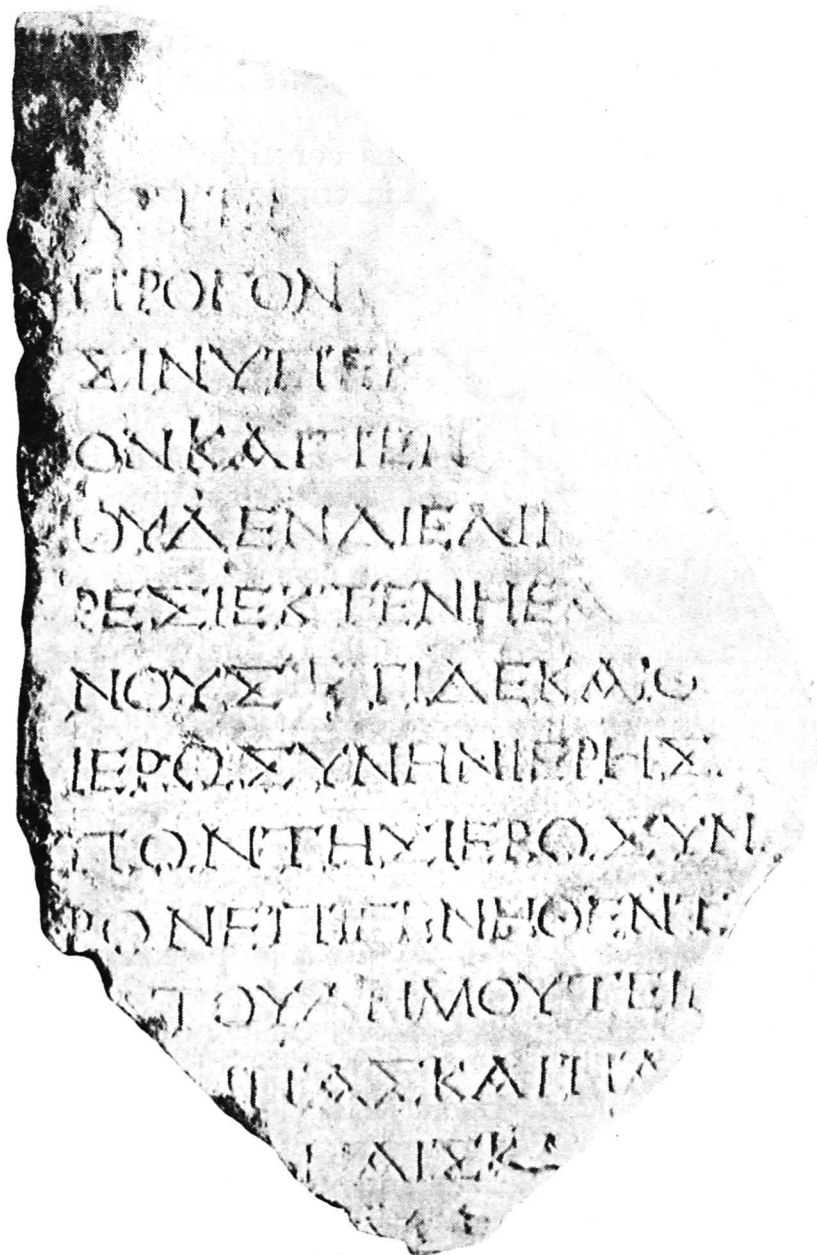 ΠΡΟΓΟΝ
ΣΙΝΥΠΕΡ
ΟΝΚΑΙΠΕΝ
ΟΥΔΕΝΔΙΕΛΙΠ
ΡΕΣΙΕΚΤΕΝΗΕΑ
ΝΟΥΣ ΕΠΙΔΕΚΑΙΘ
ΙΕΡΩΣΥΝΗΝΙΕΡΗΣ
ΠΟΝΤΗΣΙΕΡΩΣΥΝ
ΡΟΝΕΠΙΓΕΝΗΘΕΝΤ
ΤΟΥΔΗΜΟΥΤΕΙ
ΠΑΣΚΑΙΠΑ
ΑΙΣΚΑ